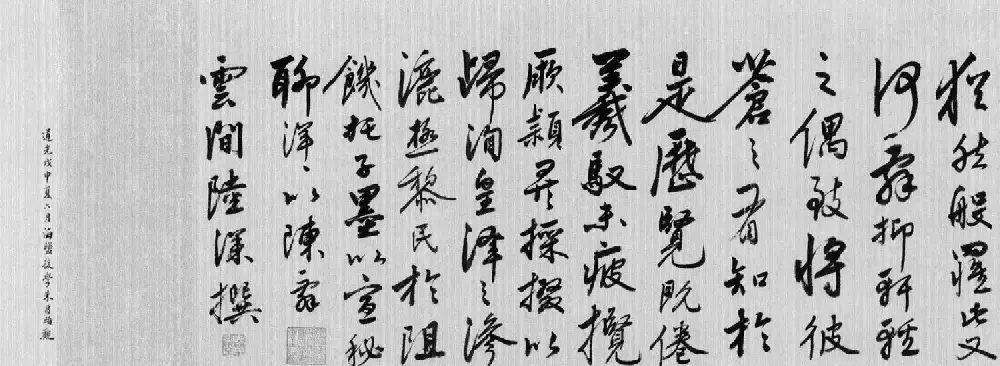 猶然般此又
何辭抑軒輊
之偶致將彼
蒼之有知於
是歷覽既倦
羲馭未疲攬
厥穎採掇以
歸洵皇澤之滲
漉極黎民於阻
饑托子墨以宣秘
聊渾〻以陳辭
雲間陸深撰
道光戊申夏六月海鹽後學朱昌頤觀